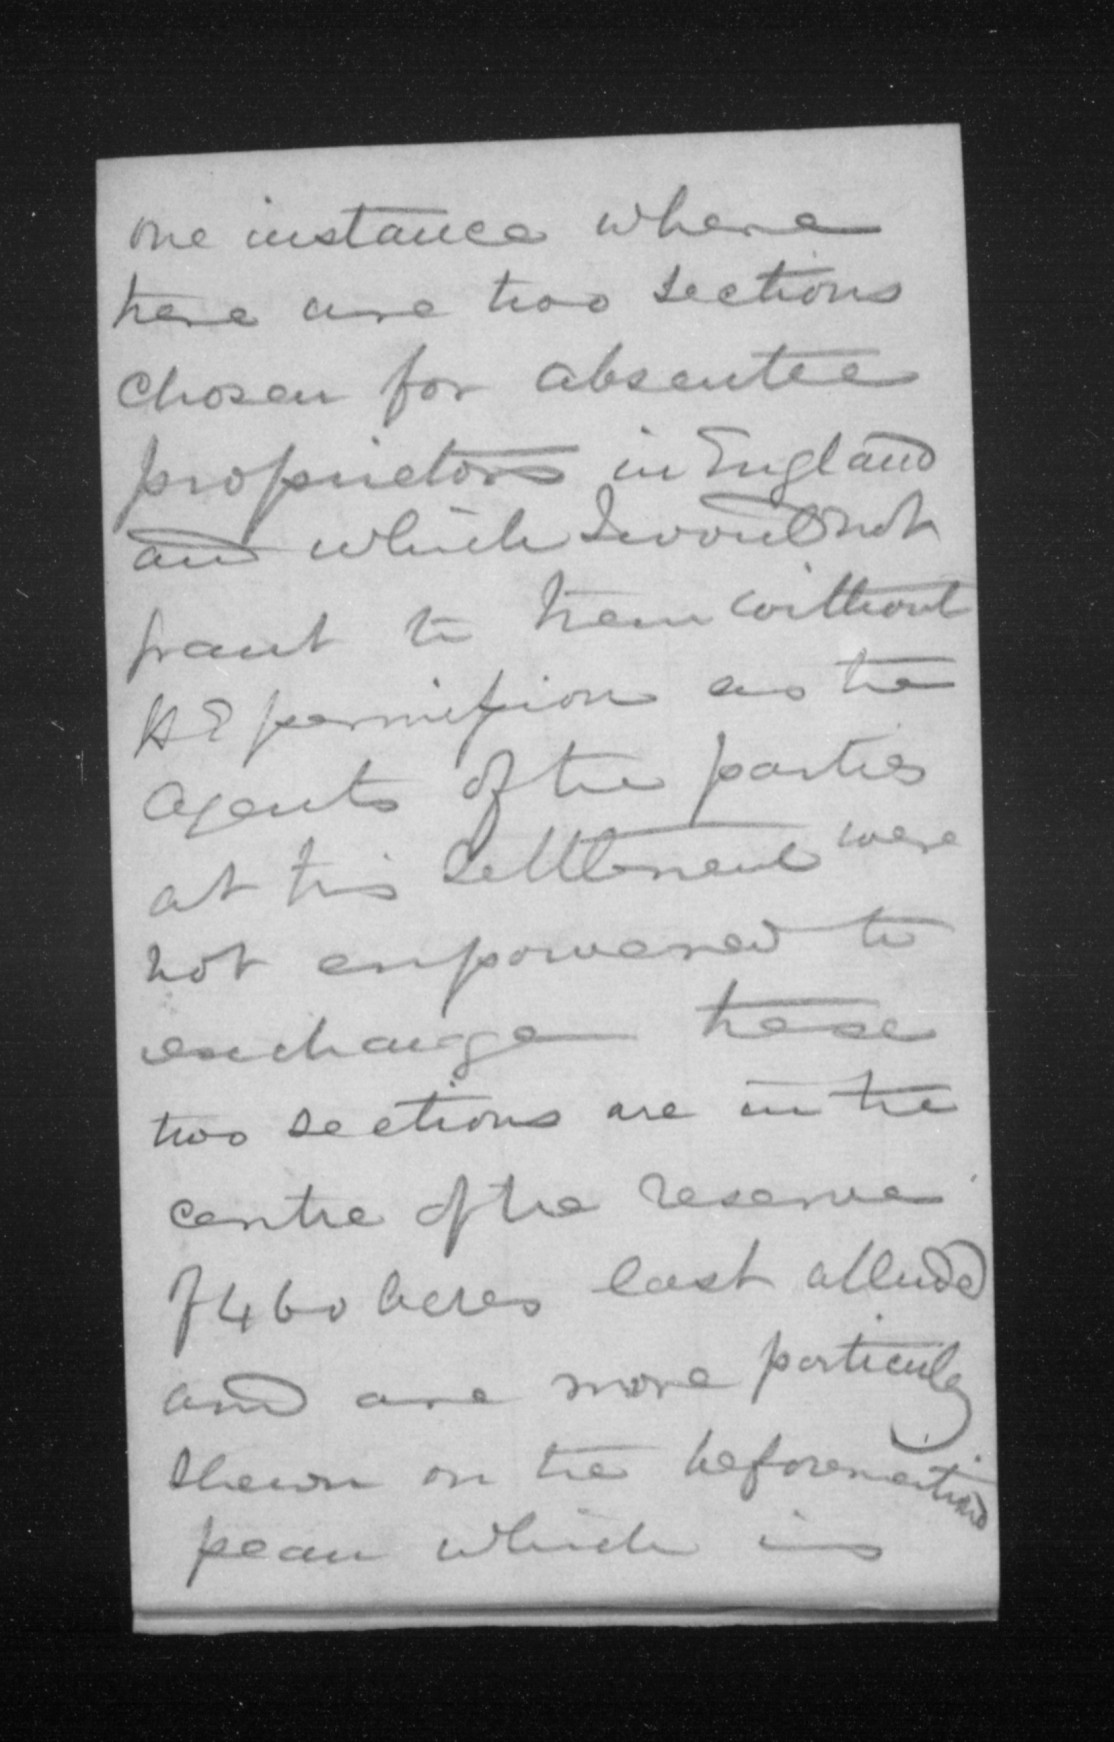 one instance where
there are two sections
chosen for absentee
proprietors in England
and which I would not
grant to them without
H E permission as the
agents of the parties
at this Settlement were
not empowered to
exchange these
two sections are in the
centre of the reserve
of 460 acres last alluded
and are more particuly
shewn on the beforementiond
plan which is